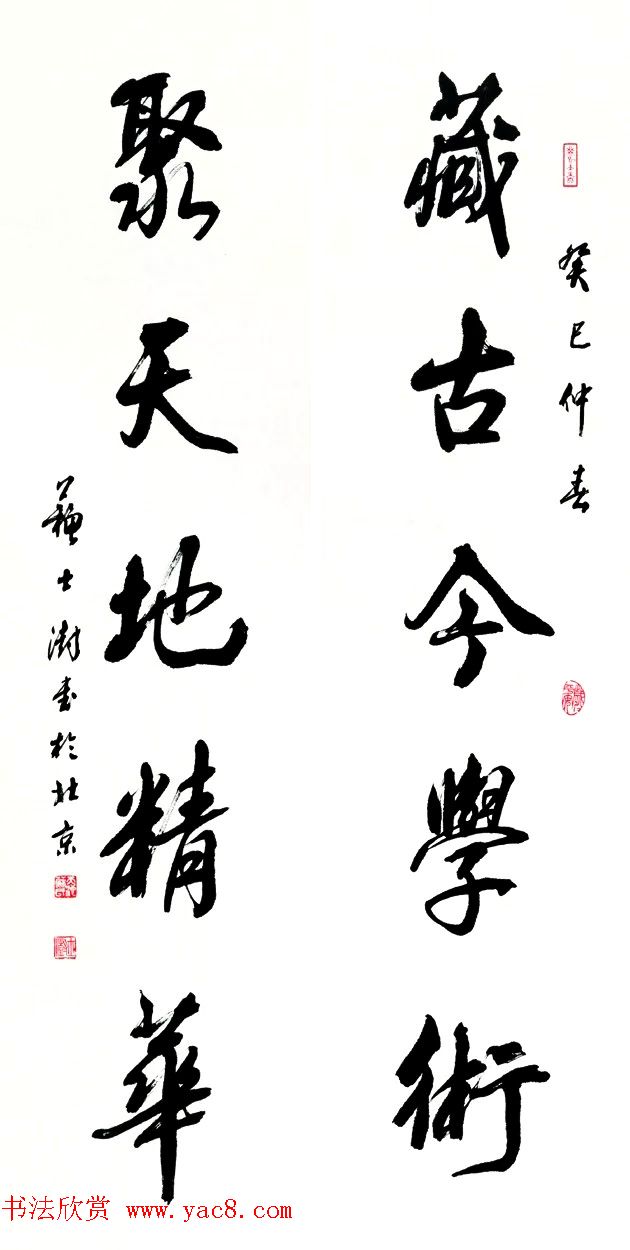 癸巳仲春
藏古今學術
聚天地精華
蘇士澍書於北京
书法欣赏 www.yac8.com